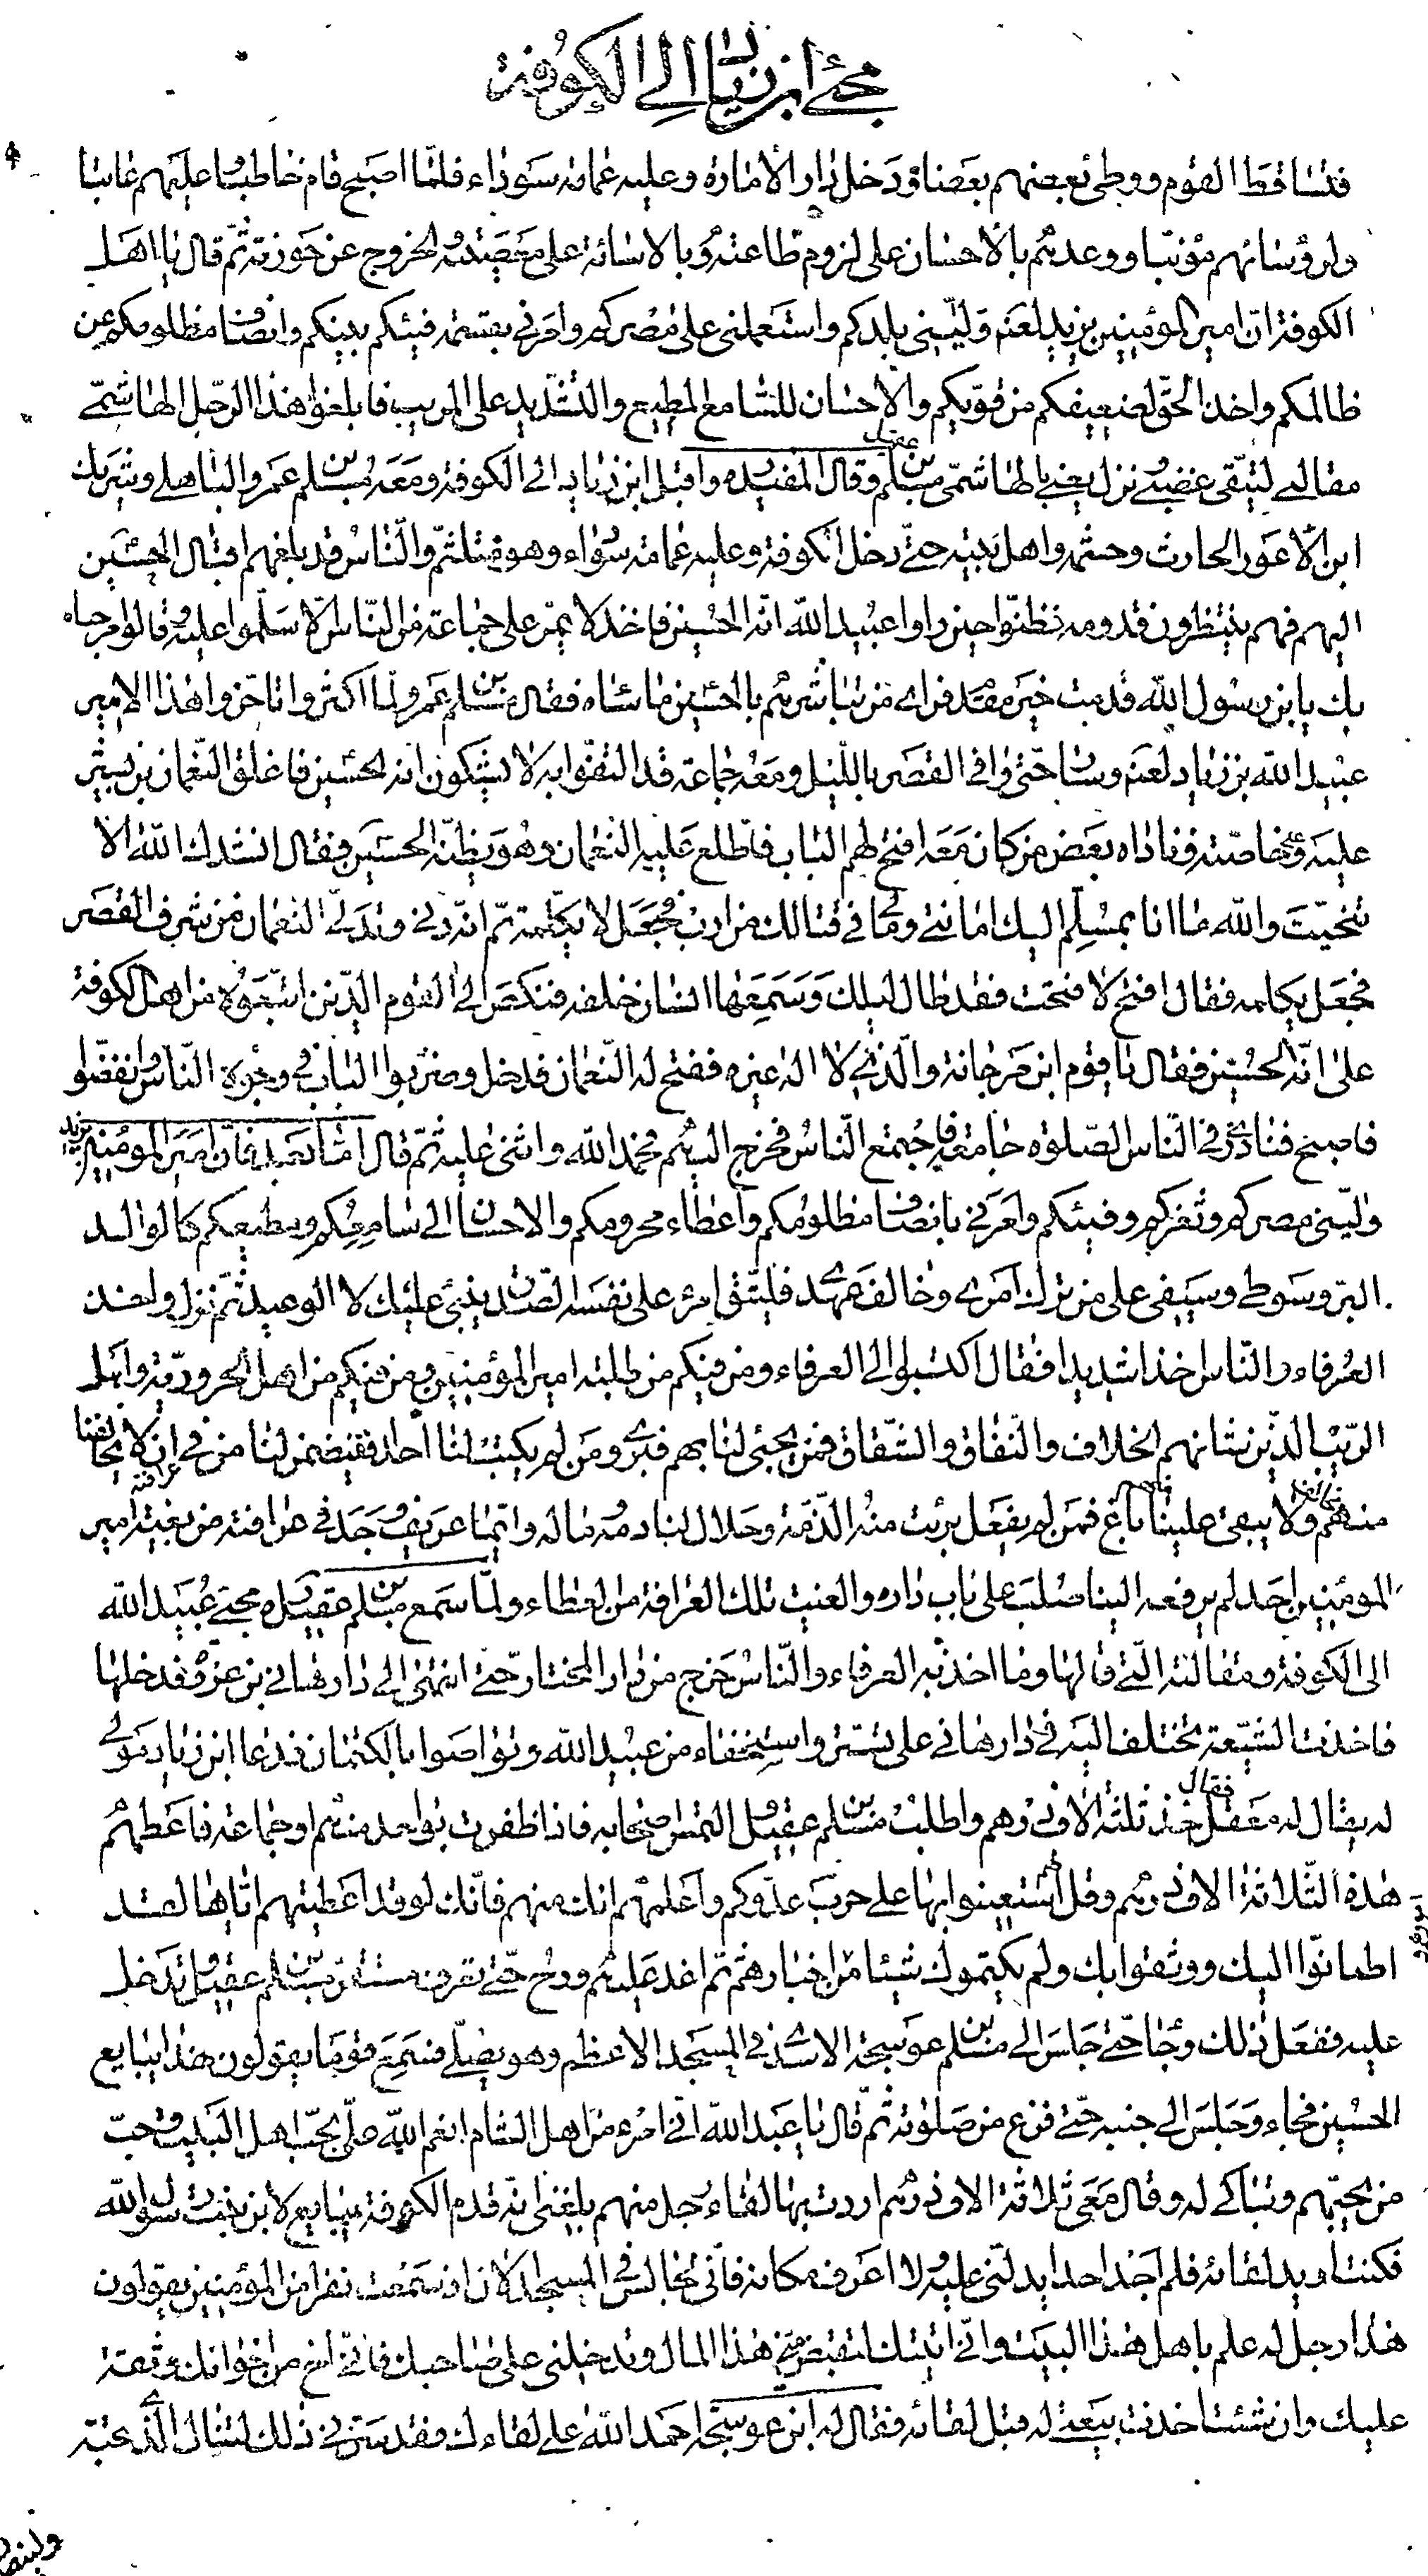 مجئ ابن زياد الى الكوفة
فتساقط القوم ووطئ بعضهم بعضا ودخل دار الامارة وعليه عمامة سوداء فلمّا اصبح قام خاطبا عليهم عاتبا
ولرؤسائهم مؤنّبا ووعدهم بالاحسان على لزوم طاعته وبالاسائة على معصيته والخروج عن حوزته ثمّ قال يا اهل
الكوفة انّ امير المؤمنين يزيد لعنه ولّيني بلدكم واستعملني على مصركم وامرني بقسمة فيئكم بينكم وانصاف مظلومكم من
ظالمكم واخذ الحقّ لضعيفكم من قويّكم والاحسان للسّامع المطيع والتشديد على المريب فابلغوا هذا الرّجل الهاشمّي
مقالتي ليتّقى غضبي ونزل يعني بالهاشمّي مسلم بن عقيل وقال المفيد ره واقبل ابن زياد الى الكوفة ومعه مسلم بن عمرو الباهلي وشريك
ابن الاعور الحارث وحشمه واهل بيته حتّى دخل الكوفة وعليه عمامة سوداء وهو متلثّم والنّاس قد بلغهم اقبال الحسين
اليهم فهم ينتظرون قدومه فظنّوا حين راوا عبيد الله انّه الحسين فاخذ لا يمرّ على جماعة من النّاس الّا سلّموا عليه وقالوا مرحبا
بك يابن رسول الله قدمت خير مقدم فراى من تباشرهم بالحسين ما ساءه فقال مسلم بن عمرو لمّا اكثروا تاخّروا هذا الامير
عبيد الله بن زياد لعنه وسار حتّى وافى القصر بالليل ومعه جماعة قد التفّوا به لا يشكّون انه الحسين فاغلق النّعمان بن بشير
عليه وعلى خاصّته فناداه بعض من كان معه افتح لهم الباب فاطّلع عليه النعمان وهو يظنّه الحسين فقال انشدك الله الا
تنحّيت والله ما انا بمسلم اليك امانتي وما لي في قتالك من ارب فجعل لا يكلّمه ثمّ انّه دنى وتدلّى النعمان من شرف القصر
فجعل يكلمه فقال افتح لا فتحت فقد طال ليلك وسمعها انسان خلفه فنكص الى القوم الّذين اتّبعوه من اهل الكوفة
على انّه الحسين فقال يا قوم ابن مرجانة والّذي لا اله غيره ففتح له النّعمان فدخل وضربوا الباب في وجوه النّاس وانفضّوا
فاصبح فنادى في النّاس الصّلوة جامعة فاجتمع النّاس فخرج اليهم فحمد الله واثنى عليه ثمّ قال امّا بعد فانّ امير المؤمنين يزيد
ولّيني مصركم وثغركم وفيئكم وامرني بانصاف مظلومكم واعطاء محرومكم والاحسان الى سامعكم ومطيعكم كالوالد
البرّ وسوطي وسيفي على من ترك امري وخالف عهدي فليتّق امرؤ على نفسه الصّدق ينبئ عليك لا الوعيد ثمّ نزل واخذ
العرفاء والنّاس اخذا شديدا فقال اكتبوا الى العرفاء ومن فيكم من طلبة امير المؤمنين ومن فيكم من اهل الحروريّة واهل
الرّيب الّذين شانهم الخلاف والنّفاق والشّقاق فمن يجئ لنا بهم فبرئ ومن لم يكتب لنا احد فليضمن لنا من في عرافته ان لا يخالفنا
منهم مخالف ولا يبغى علينا منهم باغ فمن لم يفعل برئت منه الذّمّة وحلال لنا دمه وماله وايّما عريف وجد في عرافته من بغية امير
المؤمنين احد لم يرفعه الينا صلب على باب داره والغيت تلك العرافة من العطاء ولمّا سمع مسلم بن عقيل ره مجئ عبيد الله
الى الكوفة ومقالته الّتي قالها وما اخذ به العرفاء والنّاس خرج من دار المختار حتّى انتهى الى دار هاني بن عروة فدخلها
فاخذت الشيّعة تختلف اليه في دار هاني على تستّر واستخفاء من عبيد الله وتواصوا بالكتمان فدعا ابن زياد مولى
له يقال له معقل فقال خذ ثلثة الاف درهم واطلب مسلم بن عقيل والتمس اصحابه فاذا ظفرت بواحد منهم او جماعة فاعطهم
هذه الثّلاثة الاف درهم وقل لهم استعينوا بها على حرب عدوّكم واعلمهم انك منهم فانّك لو قد اعطيتهم ايّاها لقد
اطمانّوا اليك ووثقوا بك ولم يكتموك شيئا من اخبارهم ثم اغد عليهم ورح حتّى تعرف مستقرّ مسلم بن عقيل وتدخل
عليه ففعل ذلك وجاء حتّى جلس الى مسلم بن عوسجة الاسدي في المسجد الاعظم وهو يصلّي فسمع قوما يقولون هذا يبايع
الحسين فجاء وجلس الى جنبه حتّى فرغ من صلوته ثمّ قال يا عبد الله انّي امرء من اهل الشام انعم الله عليّ بحبّ اهل البيت وحبّ
من يحبّهم وتباكى له وقال معي ثلاثة الاف درهم اردت بها لقاء رجل منهم بلغني انّه قدم الكوفة يبايع لابن بنت رسول الله
فكنت اريد لقائه فلم اجد احدا يدلّني عليه ولا اعرف مكانه فانّي لجالس في المسجد الان اذ سمعت نفرا من المؤمنين يقولون
هذا رجل له علم باهل هذا البيت وانّي اتيتك لتقبض منّي هذا المال وتدخلني على صاحبك فانّي اخ من اخوانك وثقة
عليك وان شئت اخذت بيعتي له قبل لقائه فقال له ابن عوسجة احمد الله على لقاءك فقد سرّني ذلك لتنال الّذي تحبّه